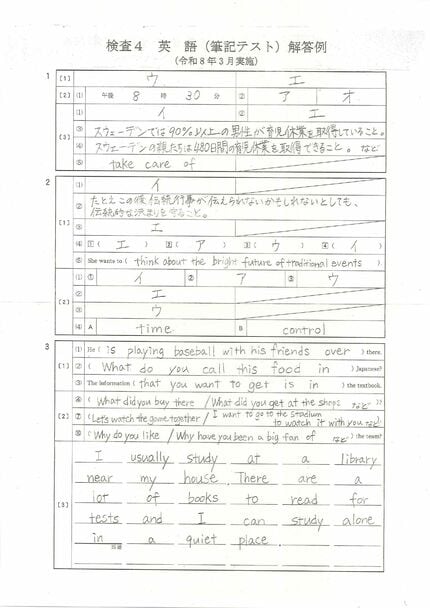 検査4 英 語(筆記テスト)解答例
(令和8年3月実施)
1
[1] ウ エ
[2] (1) 午後 8 時 30 分 (2) ア オ
[3] (1) イ (2) エ
(3) スウェーデンでは90%以上の男性が育児休業を取得していること。
(4) スウェーデンの親たちは480日間の育児休業を取得できること。など
(5) take care of
2
[1] (1) イ
(2) たとえこの後伝統行事が伝えられないかもしれないとしても、
伝統的な決まりを守ること。
(3) エ
(4) 1( エ ) 2( ア ) 3( ウ ) 4( イ )
(5) She wants to ( think about the bright future of traditional events ).
[2] (1) ① イ ② ア ③ ウ
(2) エ
(3) ウ
(4) A time B control
3
[1] (1) He ( is playing baseball with his friends over ) there.
(2) ( What do you call this food in ) Japanese?
(3) The information ( that you want to get is in ) the textbook.
[2] ( What did you buy there / What did you get at the shops など )?
(Let's watch the game together / I want to go to the stadium
to watch it with you など)
( Why do you like / Why have you been a big fan of など ) the team?
[3] I usually study at a library
near my house. There are a
lot of books to read for
tests and I can study alone
in a quiet place.